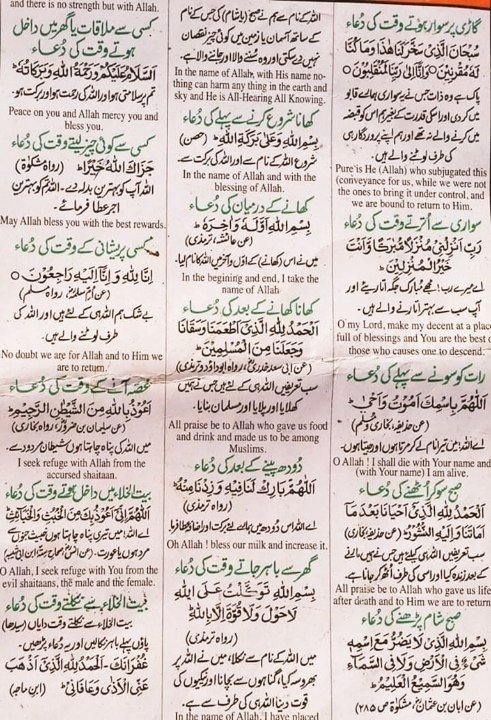 گاڑی پر سوار ہوتے وقت کی دُعاء
سُبْحَانَ الَّذِیْ سَخَّرَ لَنَا هٰذَا وَمَا كُنَّا
لَهٗ مُقْرِنِیْنَ ○ وَاِنَّا اِلٰی رَبِّنَا لَمُنْقَلِبُوْنَ ○
پاک ہے وہ ذات جس نے یہ سواری ہمارے قابو
میں کر دی اور اسکی قدرت کے بغیر ہم اس کو قبضہ
میں کرنے والے نہ تھے اور ہم اپنے پروردگار ہی
کی طرف لوٹنے والے ہیں۔
Pure is He (Allah) who subjugated this
(conveyance for us, while we were not
the ones to bring it under control, and
we are bound to return to Him.
سواری سے اُترتے وقت کی دُعاء
رَبِّ اَنْزِلْنِیْ مُنْزَلًا مُّبٰرَكًا وَّاَنْتَ
خَیْرُ الْمُنْزِلِیْنَ ○
اے میرے رب! مجھے مبارک جگہ اتاریئے اور
آپ سب سے بہتر اتارنے والے ہیں۔
O my Lord, make my decent at a place
full of blessings and You are the best of
those who causes one to descend.
رات کو سونے سے پہلے کی دُعاء
اَللّٰهُمَّ بِاسْمِكَ اَمُوْتُ وَاَحْیٰ ○
اے اللہ! میں تیرا نام لے کر مرتا اور جیتا ہوں۔
O Allah ! I shall die with Your name and
(with Your name) I am alive.
صبح سو کر اُٹھنے کی دُعاء
اَلْحَمْدُ لِلّٰهِ الَّذِیْ اَحْیَانَا بَعْدَ مَا
اَمَاتَنَا وَاِلَیْهِ النُّشُوْرُ ○
سب تعریفیں اللہ ہی کیلئے ہیں جس نے ہمیں مارنے
کے بعد زندہ کیا اور اسی کی طرف اُٹھ کر جانا ہے۔
All praise be to Allah who gave us life
after death and to Him we are to return.
صبح شام پڑھنے کی دُعاء
بِسْمِ اللّٰهِ الَّذِیْ لَا یَضُرُّ مَعَ اسْمِهٖ
شَیْءٌ فِی الْاَرْضِ وَلَا فِی السَّمَآءِ
وَهُوَ السَّمِیْعُ الْعَلِیْمُ ○
(عن ابان بن عثمانؓ، مشکوٰة ص ۲۸۵)
اللہ کے نام سے ہم نے صبح (یا شام) کی جس کے نام
کے ساتھ آسمان یا زمین میں کوئی چیز نقصان
نہیں دے سکتی اور وہ سننے والا اور جاننے والا ہے۔
In the name of Allah, with His name no-
thing can harm any thing in the earth and
sky and He is All-Hearing All Knowing.
کھانا شروع کرنے سے پہلے کی دُعاء
بِسْمِ اللّٰهِ وَعَلٰی بَرَكَةِ اللّٰهِ ○ (حصن)
شروع اللہ کے نام سے اور اللہ کی برکت سے۔
In the name of Allah and with the
blessing of Allah.
کھانے کے درمیان کی دُعاء
بِسْمِ اللّٰهِ اَوَّلَهٗ وَاٰخِرَهٗ ○
(عن عائشہؓ، ترمذی)
میں نے اس کھانے کے اوّل و آخر میں اللہ کا نام لیا۔
In the begining and end, I take the
name of Allah
کھانا کھانے کے بعد کی دُعاء
اَلْحَمْدُ لِلّٰهِ الَّذِیْ اَطْعَمَنَا وَسَقَانَا
وَجَعَلَنَا مِنَ الْمُسْلِمِیْنَ ○
(عن ابی سعید خدریؓ، رواہ ابوداؤد و ترمذی)
سب تعریفیں اللہ ہی کے لئے ہیں جس نے ہمیں
کھلایا اور پلایا اور مسلمان بنایا۔
All praise be to Allah who gave us food
and drink and made us to be among
Muslims.
دُودھ پینے کے بعد کی دُعاء
اَللّٰهُمَّ بَارِكْ لَنَا فِیْهِ وَزِدْنَا مِنْهُ ○
(رواہ ترمذی)
اے اللہ اس دودھ میں ہمارے لئے برکت اور اضافہ عطا فرما
Oh Allah ! bless our milk and increase it.
گھر سے باہر جاتے وقت کی دُعاء
بِسْمِ اللّٰهِ تَوَكَّلْتُ عَلَی اللّٰهِ
لَا حَوْلَ وَلَا قُوَّةَ اِلَّا بِاللّٰهِ ○
(رواہ ترمذی)
میں اللہ کے نام سے نکلا، میں نے اللہ پر
بھروسہ کیا، گناہوں سے بچانا اور نیکیوں کی
قوت دینا اللہ ہی کی طرف سے ہے۔
In the name of Allah, I have placed
and there is no strength but with Allah.
کسی سے ملاقات یا گھر میں داخل
ہوتے وقت کی دُعاء
اَلسَّلَامُ عَلَیْكُمْ وَرَحْمَةُ اللّٰهِ وَبَرَكَاتُهٗ ○
تم پر سلامتی ہو اور اللہ کی رحمت ہو اور برکت ہو۔
Peace on you and Allah mercy you and
bless you.
کسی سے کوئی چیز لیتے وقت کی دُعاء
جَزَاكَ اللّٰهُ خَیْرًا ○ (رواہ مشکوٰة)
اللہ آپ کو بہترین بدلہ دے۔ اللہ تم کو بہترین
اجر عطا فرمائے۔
May Allah bless you with the best rewards.
کسی پریشانی کے وقت کی دُعاء
اِنَّا لِلّٰهِ وَاِنَّا اِلَیْهِ رَاجِعُوْنَ ○
(عن اُمّ سلمہؓ، رواہ مسلم)
بے شک ہم اللہ ہی کے لئے ہیں اور اللہ کی
طرف لوٹنے والے ہیں۔
No doubt we are for Allah and to Him we
are to return.
غصّہ آنے کے وقت کی دُعاء
اَعُوْذُ بِاللّٰهِ مِنَ الشَّیْطٰنِ الرَّجِیْمِ ○
(عن سلیمان بن صُردؓ، رواہ بخاری)
میں اللہ کی پناہ چاہتا ہوں شیطان مردود سے۔
I seek refuge with Allah from the
accursed shaitaan.
بیت الخلاء میں داخل ہوتے وقت کی دُعاء
اَللّٰهُمَّ اِنِّیْ اَعُوْذُ بِكَ مِنَ الْخُبُثِ وَالْخَبَآئِثِ
اے اللہ! میں تیری پناہ چاہتا ہوں خبیث جنوں سے
مرد ہوں یا عورت۔
O Allah, I seek refuge with You from the
evil shaitaans, the male and the female.
بیت الخلاء سے نکلتے وقت کی دُعاء
بیت الخلاء سے نکلتے وقت دایاں (سیدھا)
پاؤں پہلے باہر نکالیں اور یہ دُعاء پڑھیں۔
غُفْرَانَكَ - اَلْحَمْدُ لِلّٰهِ الَّذِیْ اَذْهَبَ
عَنِّی الْاَذٰی وَعَافَانِیْ ○ (ابن ماجہ)